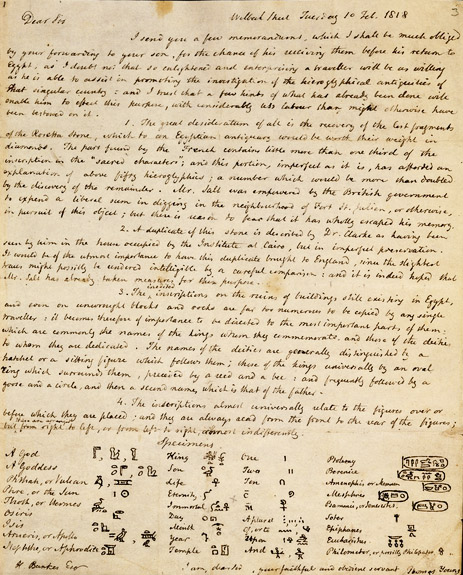 3
Dear Sir Welbeck Street Tuesday 10 Feb. 1818
I send you a few memorandums, which I shall be much obliged
by your forwarding to your son, for the chance of his receiving them before his return to
Egypt, as I doubt not that so enlightened and enterprising a traveller will be as willing
as he is able to assist in promoting the investigation of the hieroglyphical antiquities of
that singular country: and I trust that a few hints of what has already been done will
enable him to effect this purpose, with considerably less labour than might otherwise have
been bestowed on it.
1. The great desideratum of all is the recovery of the lost fragments
of the Rosetta Stone, which to an Egyptian antiquary would be worth their weight in
diamonds. The part found by the French contains little more than one third of the
inscription in the "sacred characters"; and this portion, imperfect as it is, has afforded an
explanation of above fifty hieroglyphics; a number which would be more than doubled
by the discovery of the remainder. Mr. Salt was empowered by the British government
to expend a liberal sum in digging in the neighbourhood of Fort St. Julien, or otherwise,
in pursuit of this object; but there is reason to fear that it has wholly escaped his memory.
2. A duplicate of this stone is described by Dr. Clarke as having been
seen by him in the house occupied by the Institute at Cairo, but in imperfect preservation.
It would be of the utmost importance to have this duplicate brought to England, since the slightest
traces might possibly be rendered intelligible by a careful comparison: and it is indeed hoped that
Mr. Salt has already taken measures for this purpose.
3. The inscriptions on the ruins of buildings still existing in Egypt,
and even on unwrought blocks and rocks are far too numerous to be copied by any single
traveller: it becomes therefore of importance to be directed to the most important parts of them.
which are commonly the names of the kings whom they commemorate and those of the deities
to whom they are dedicated. The names of the deities are generally distinguished by a
hatchet or a sitting figure which follows them; those of the kings universally by an oval
ring which surrounds them, preceded by a reed and a bee: and frequently followed by a
goose and a circle, and then a second name, which is that of the father.
4. The inscriptions almost universally relate to the figures over or
before which they are placed; and they are always read from the front to the rear of the figures;
but from right to left, or from left to right, almost indifferently.
Specimens
A God King One 1 Ptolemy
A Goddess Son Two Berenice
Phthah, or Vulcan Life Ten Amenophis or Memnon
Phre, or the Sun Eternity Mesphres
Thoth, or Hermes Immortal
Osiris Day A plural Soter
Isis Month Epiphanes
Arueris, or Apollo Year Upon Eucharistus
Nephthe, or Aphrodite Temple And Philometor, or possibly Philopator
W Bankes Esqr I am, dear Sir, your faithful and obedient servant Thomas Young